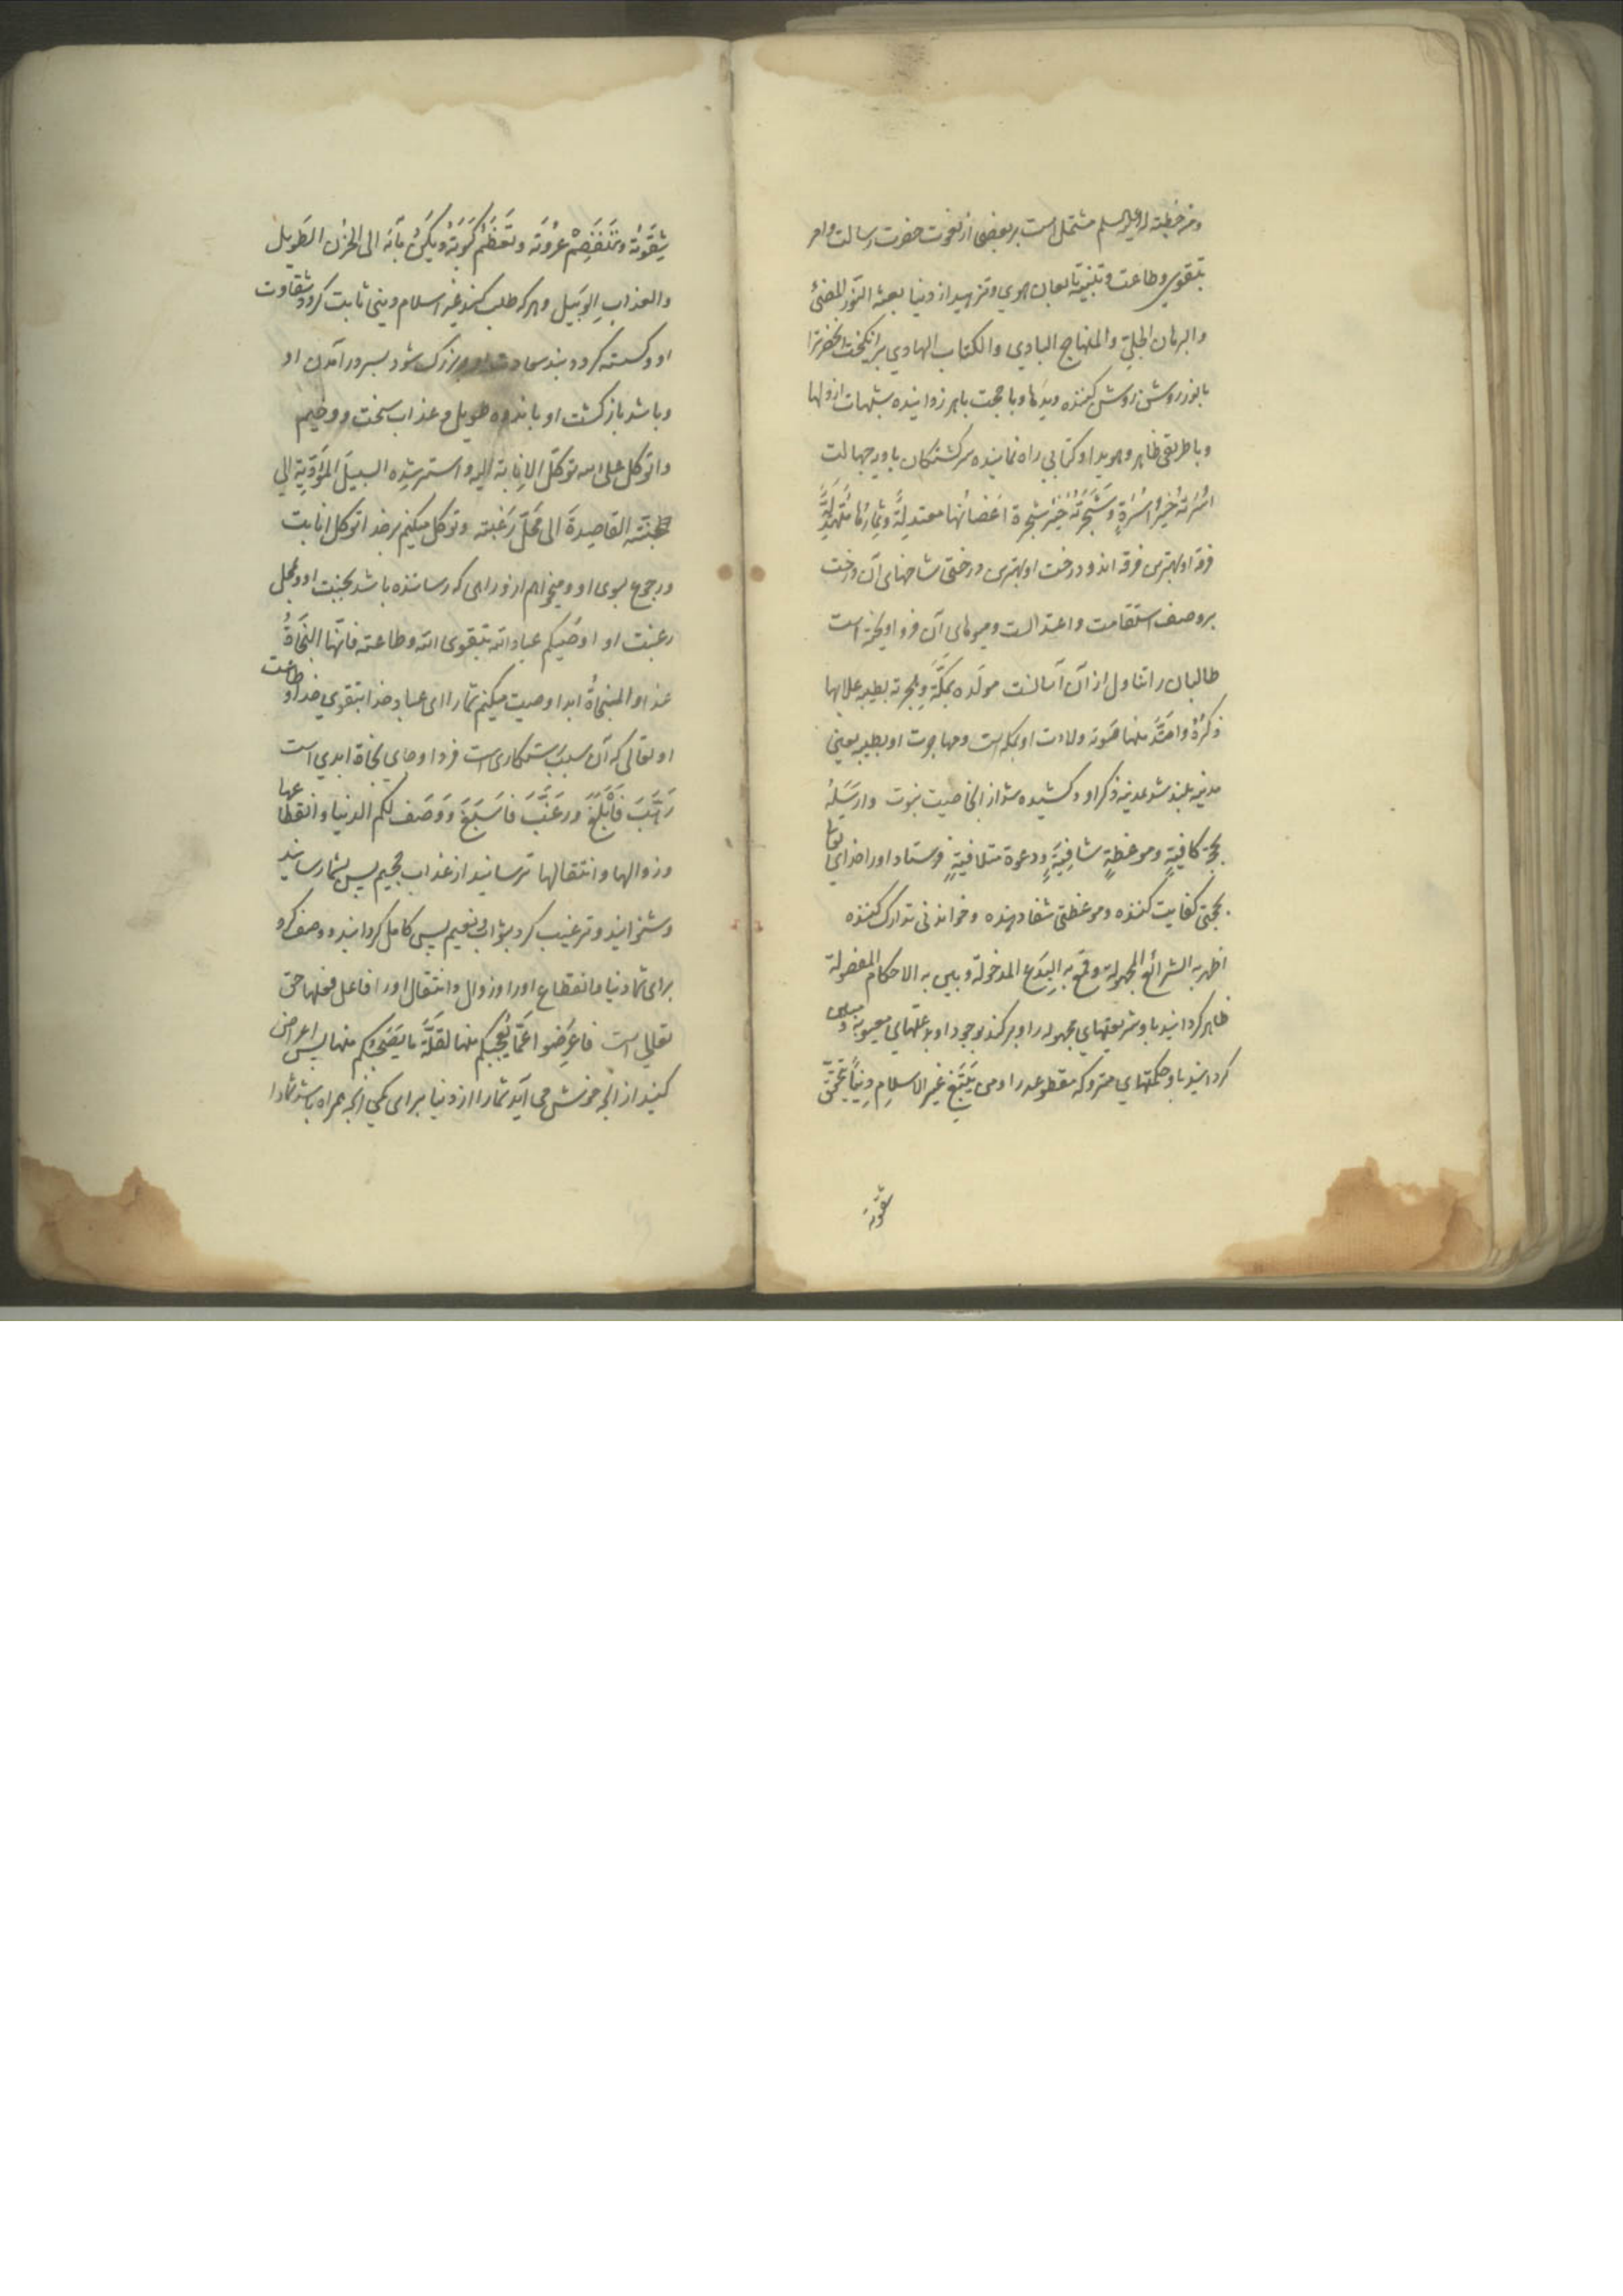 ومن خطبة له علیه السلم مشتمل است بر بعضی از نعوت حضرت رسالت و امر
بتقوی و طاعت و تنبیه تابعان هوی و تزهید از دنیا بعثه بالنّور المضیٔ
والبرهان الجلیّ والمنهاج البادی والکتاب الهادی برانگیخت آنحضرترا
با نور روشن روشن کننده دیدها و با حجت باهر زدانیده شبهات از دلها
و با طریقی ظاهر و هویدا و کتابی راه نماینده سرگشتگان بادیه جهالت
اُسْرَتُه خَیْرُ اُسْرَةٍ وَشَجَرَتُهُ خَیْرُ شجرة اَغصانُها معتدلةٌ وثِمارُها مُتَهَدِّلَةٌ
فرقه او بهترین فرقه اند و درخت او بهترین درختی شاخهای آن درخت
بر وصف استقامت و اعتدالست و میوهای آن فرو اویخته است
طالبان را تناول از آن آسانست مولَده بمکّة وهجرته بطیبه علا بها
ذکرُهُ وامتَدَّ منها صَوته ولادت او بمکه است و مهاجرت او بطیبه یعنی
مدینه بلند شد بمدینه ذکر او و کشیده شد از آنجا صیت نبوت وارسَلَهُ
بحجّة کافیةٍ وموعظةٍ شافِیَةٍ ودعوة متلافیةٍ فرستاد اورا خدای تعا
بحجتی کفایت کننده و موعظتی شفا دهنده و خواندنی تدارک کننده
اظهر به الشرائع المجهولة وقمع به البِدَع المدخولة وبیّن به الاحکام المفصولة
ظاهر گردانید باو شریعتهای مجهوله را و برکند بوجود او بدعتهای معیوبه و مبین
گردانید باو حکمتهای متروکه مقطوعه را ومن یَبْتَغِ غیر الاسلامِ دِیناً تتحقّق
شقوته
شِقوَتُه وتنفَصِمْ عُروَته وتَعظُم کَبْوَتُه ویکُنْ مَآبُه الی الحزن الطَویل
والعذابِ الوَبیل و هر که طلب کند غیر اسلام دینی ثابت گردد شقاوت
او و گسسته گردد بند سعادت او و بزرگ شود بسر در آمدن او
و باشد بازگشت او باندوه طویل و عذاب سخت و وخیم
واتوکل علی الله توکّلَ الاِنابة الیه واسترشِده السبیلَ المؤدّیة الی
جنّته القاصِدةَ الی مَحَلّ رَغْبته و توکل میکنم بر خدا توکل انابت
و رجوع بسوی او و میخواهم ازو راهی که رساننده باشد بجنت او و محل
رغبت او اوصیکم عباد الله بتقوی الله وطاعته فانّها النجاةُ
غداً والمنجاةُ ابداً وصیت میکنم شمارا ای عباد خدا بتقوی خدا و طاعت
او تعالی که آن سبب رستگاری است فردا و جای نجاة ابدی است
رَهَّبَ فَأَبْلَغَ ورَغَّبَ فَاَسبَغَ وَوَصَف لکم الدنیا وانقطاعها
وزوالها وانتقالها ترسانید از عذاب جحیم پس بشما رسانید
و شنوانید و ترغیب کرد بثواب نعیم پس کامل گردانید و وصف کرد
برای شما دنیا و انقطاع اورا و زوال و انتقال اورا فاعل فعلها حق
تعالی است فاعرِضوا عَمّا یُعجِبکم منها لقلّة ما یَصحَبُکم منها پس اعراض
کنید از آنچه خوش می آید شمارا از دنیا برای کمی آنچه همراه باشد شمارا